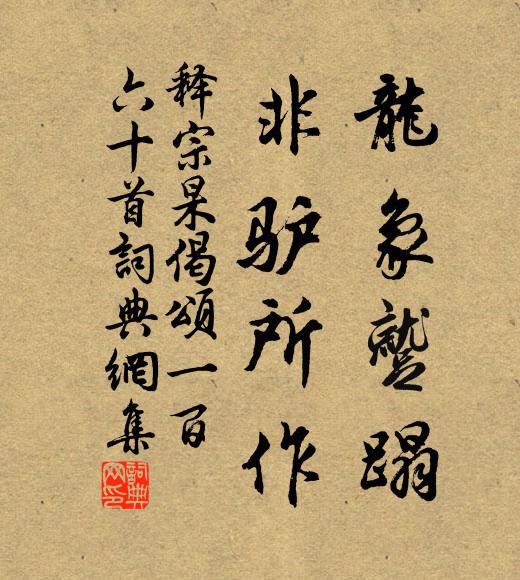 龍象蹵蹋
非驴所作
释宗杲偈頌一百
六十首詞典網集
詞典网印